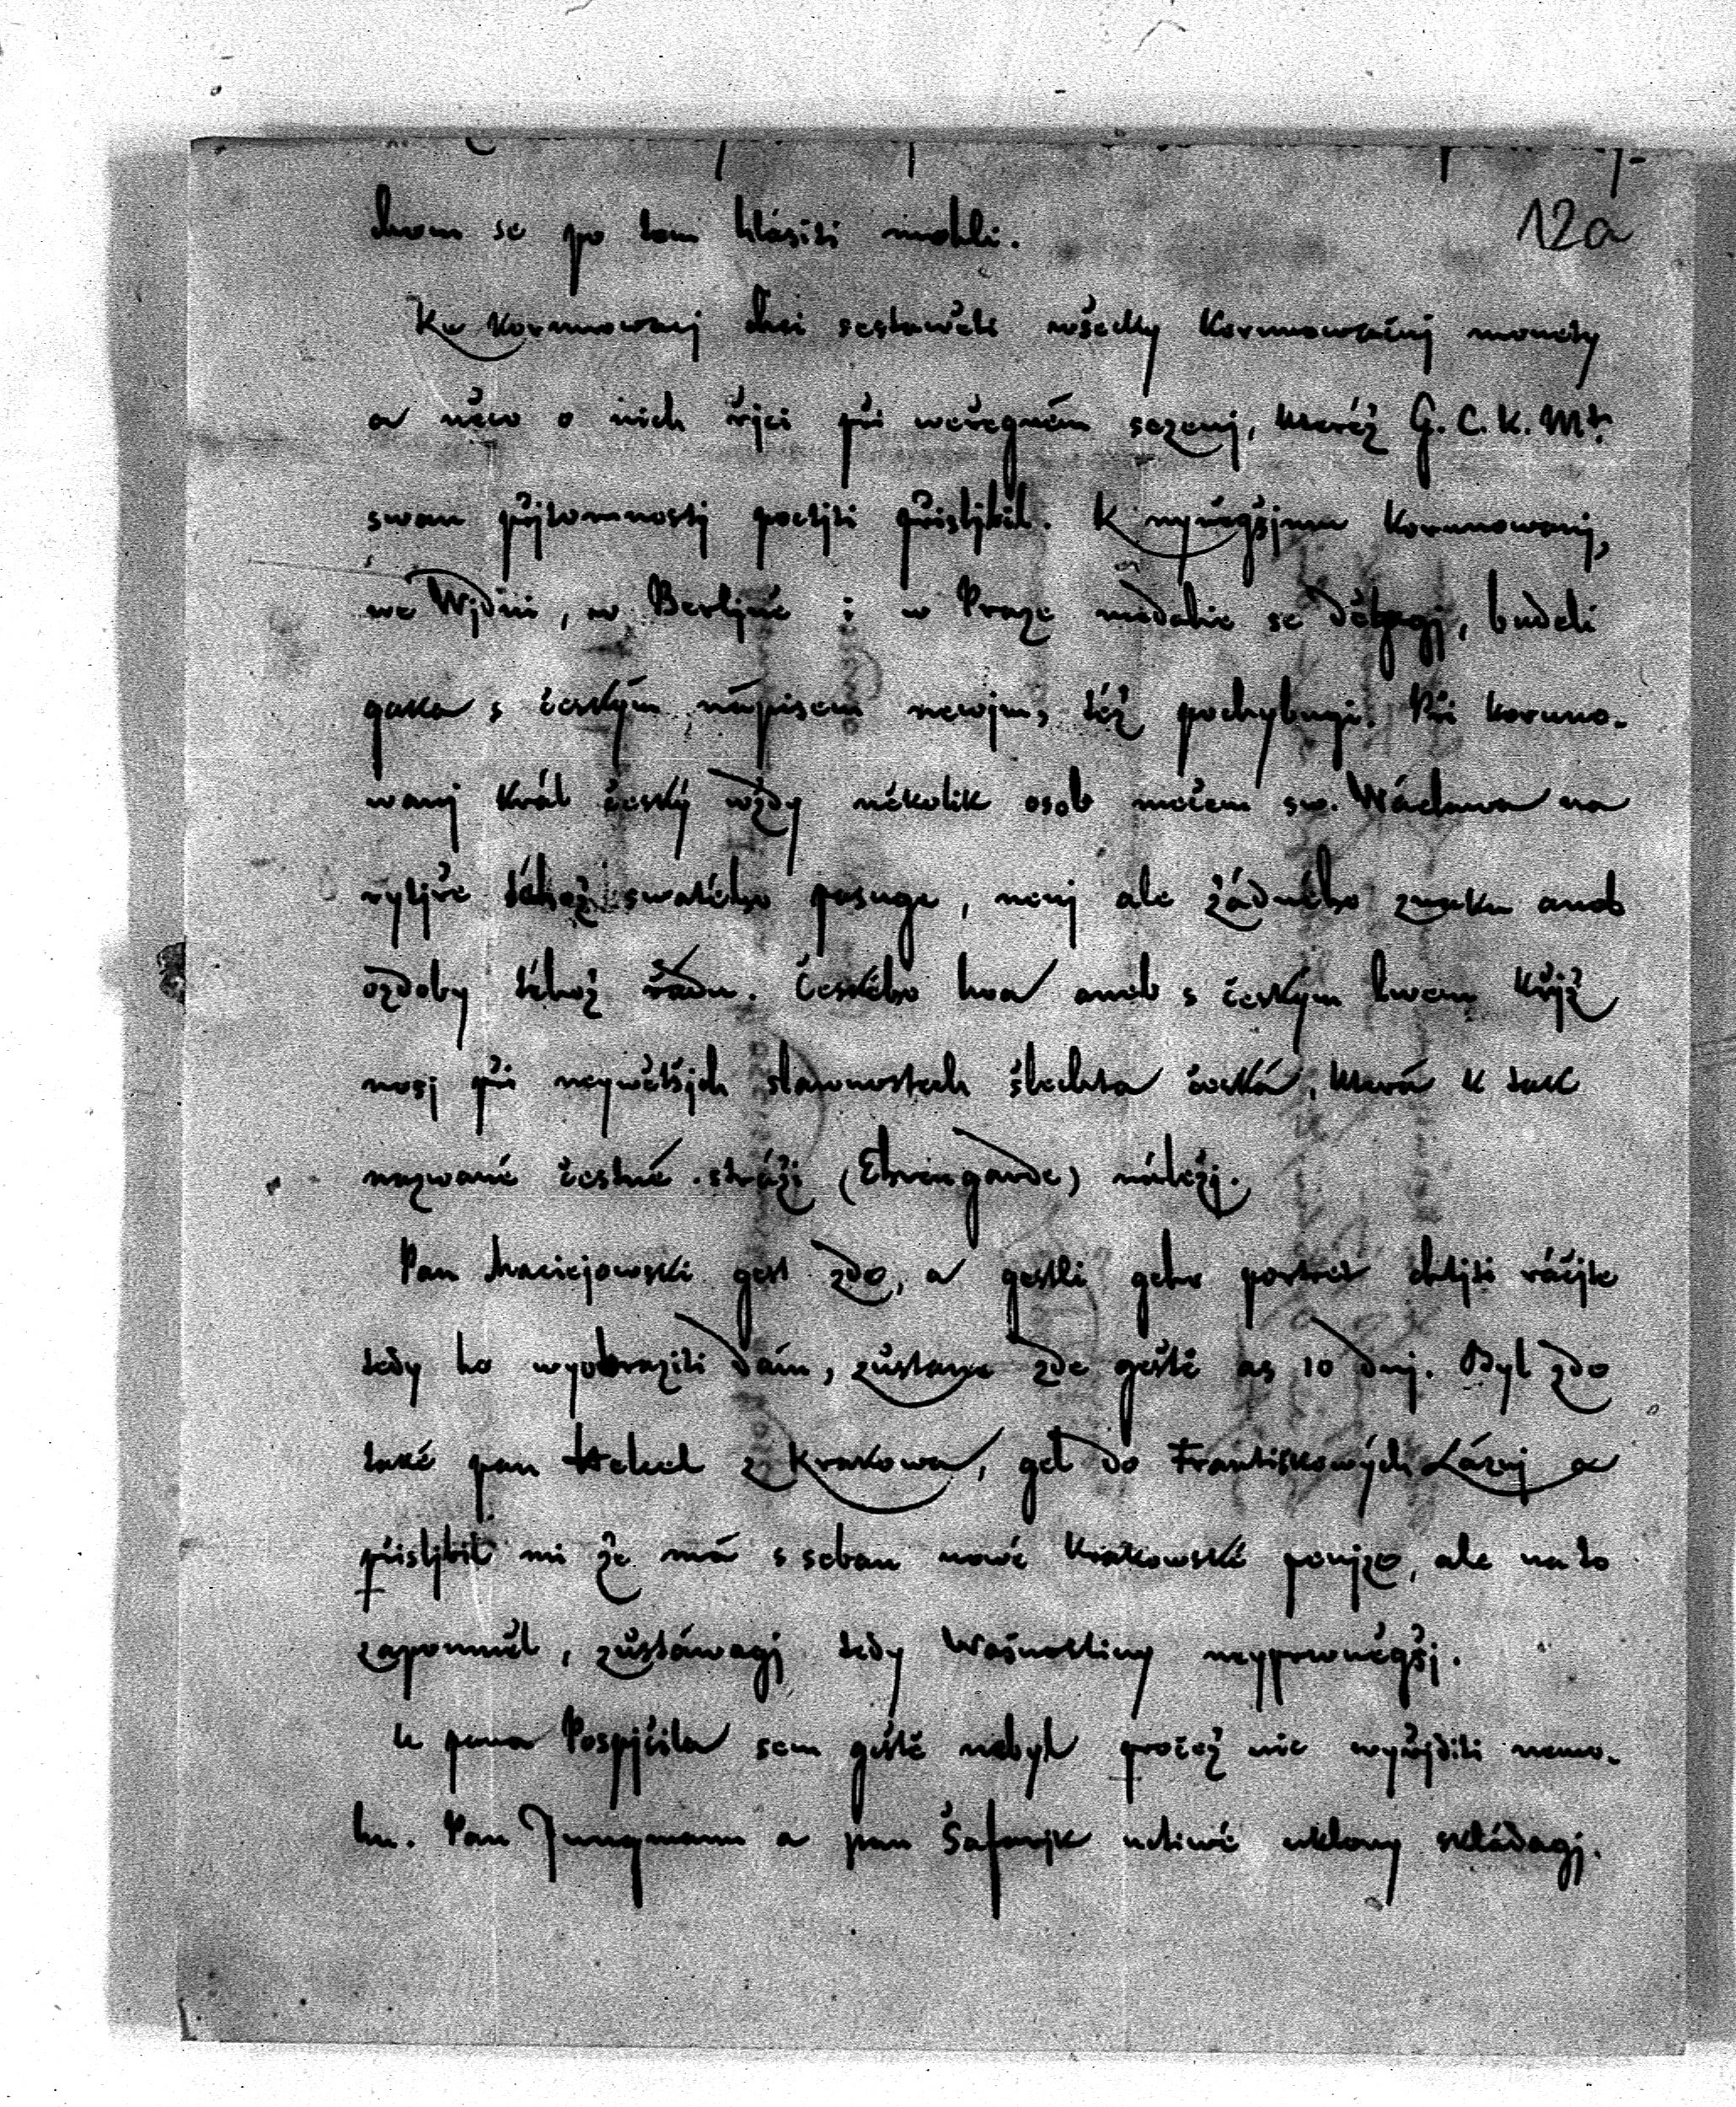 12a
chom se po tom hlásiti mohli.
Ke korunowanj chci sestawěti wšecky korunowačnj monety
a něco o nich řjci při weřegném sezenj, kteréž G. C. K. Mt.
swau přjtomnostj poctjti přisljbil. K nyněgšjmu korunowanj,
we Wjdni, w Berljně i w Praze medalie se dělagj, budeli
gaka s českým nápisem newjm, též pochybugi. Při koruno-
wanj král český wždy několik osob mečem sw. Wáclawa na
rytjře téhož swatého pasuge, nenj ale žádného znaku aneb
ozdoby téhož řádu. Českého lwa aneb s českým lwem křjž
nosj při neywětšjch slawnostech šlechta česká, která k tak
nazwané čestné stráži (Ehrengarde) náležj.
Pan Maciejowski gest zde, a gestli geho portrét chtjti ráčjte
tedy ho wyobraziti dám, zůstane zde geště as 10 dnj. Byl zde
také pan Helcel z Krakowa, gel do Františkowých Láznj a
přisljbil mi že má s sebau nowé Krakowské penjze, ale na to
zapomněl, zůstáwagj tedy Wašnostiny neyprwněgšj.
U pana Pospjšila sem geště nebyl pročež nic wyřjditi nemo-
hu. Pan Jungmann a pan Šafařjk uctiwé úklony skládagj.